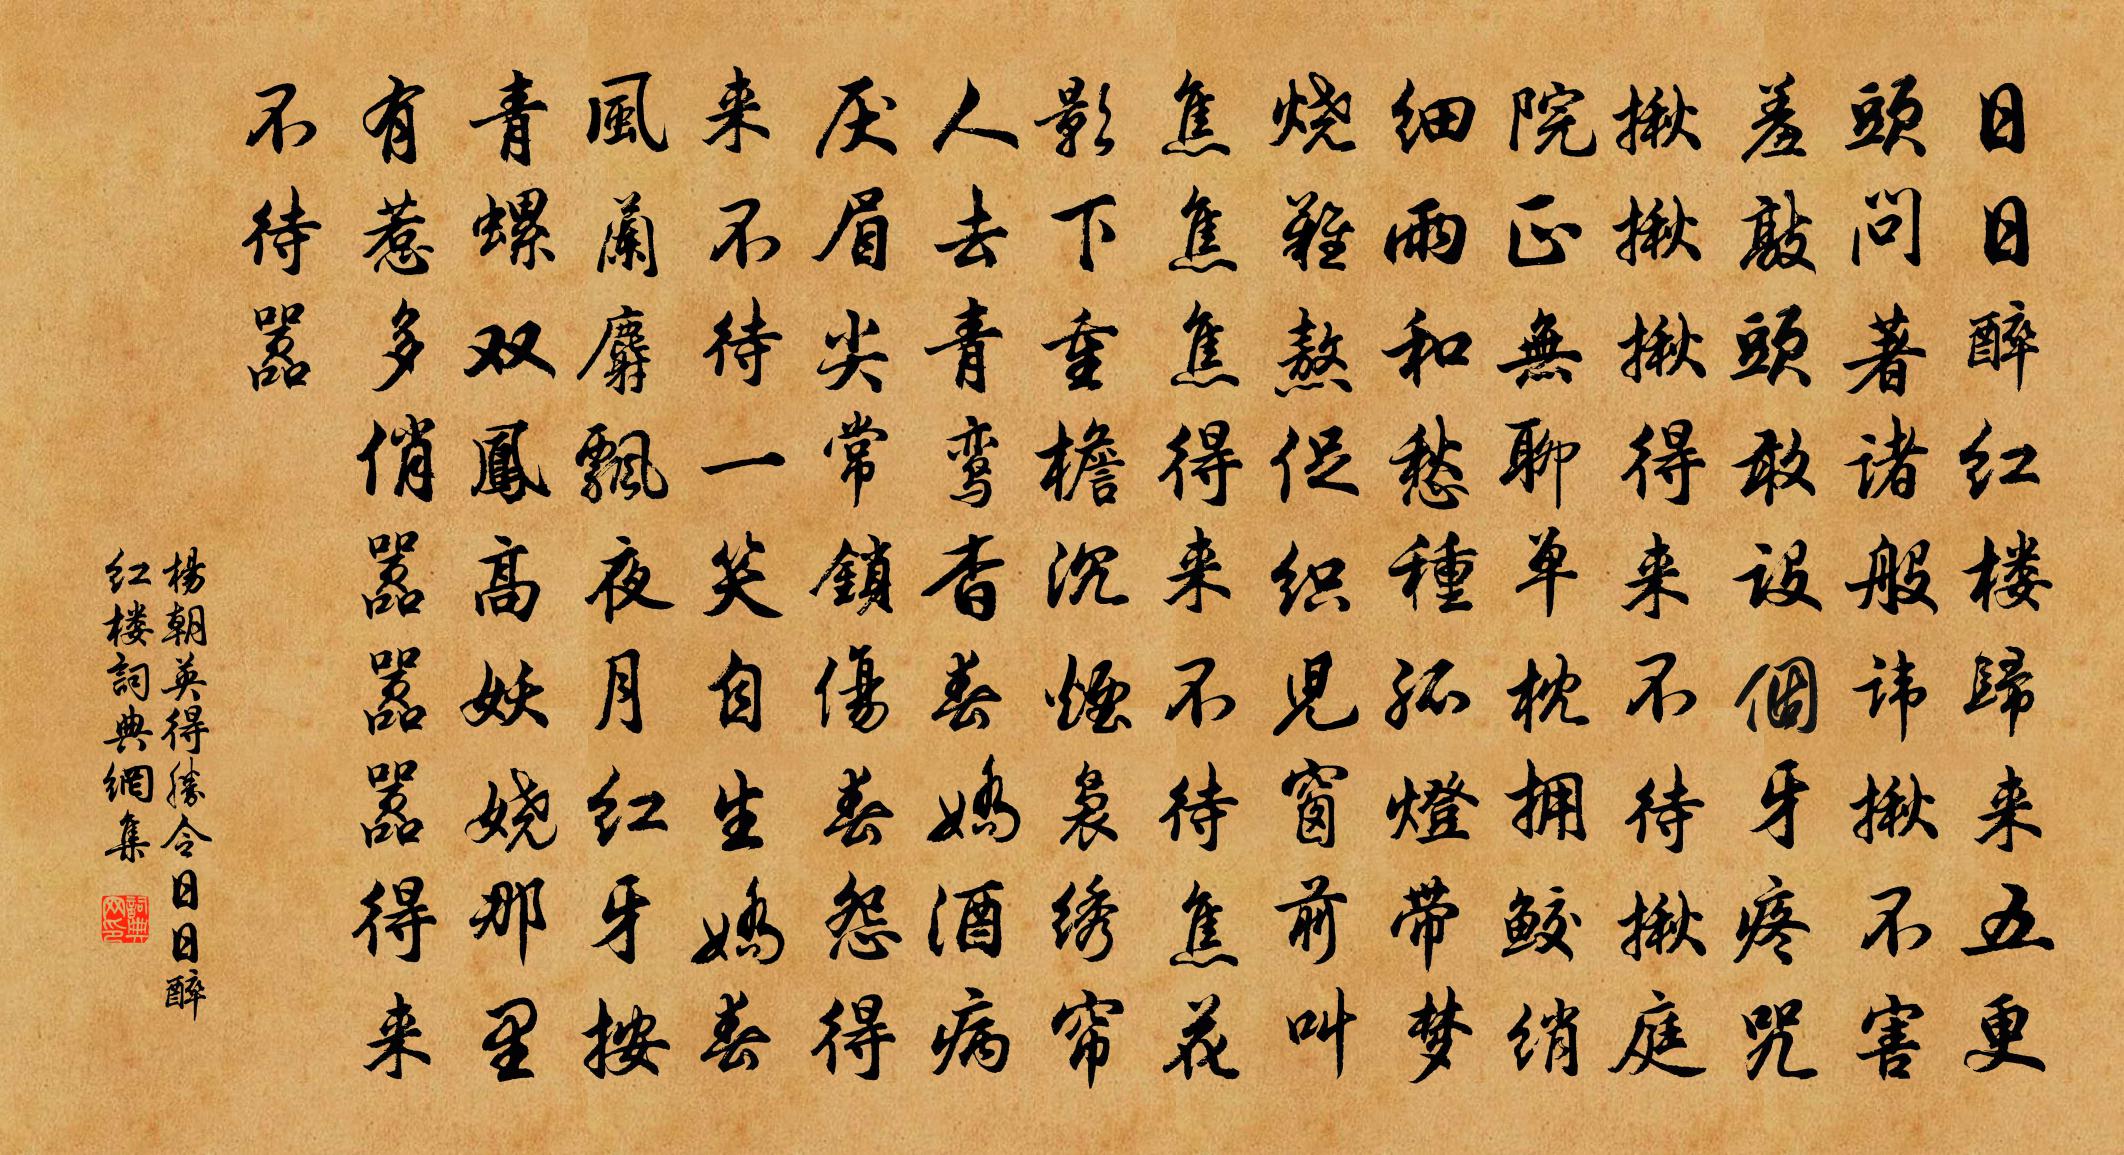 日日醉红楼歸来五更
頭問著诸般讳揪不害
羞敲頭敢设個牙疼咒
揪揪揪得来不待揪庭
院正無聊单枕拥鲛绡
细雨和愁種孤燈带梦
烧難熬促织儿窗前叫
焦焦焦得来不待焦花
影下重檐沉烟袅绣帘
人去青鸾杳春娇酒病
厌眉尖常鎖傷春怨得
来不待一笑自生娇春
風蘭麝飄夜月红牙按
青螺双鳳高妖娆那里
有惹多俏嚣嚣嚣得来
不待嚣
楊朝英得勝令日日醉
红楼詞典網集
詞典网印